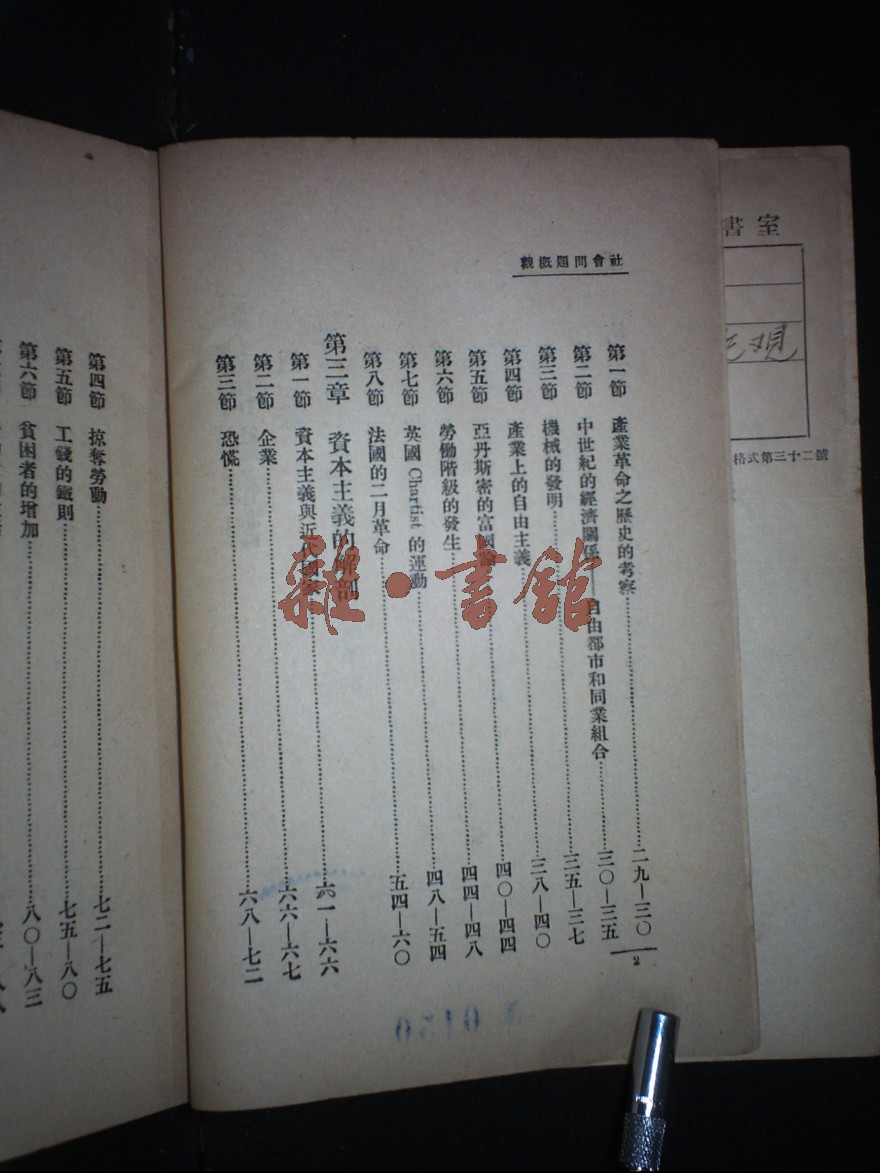 社會問題概觀
第一節 產業革命之歷史的考察……二九—三〇
第二節 中世紀的經濟關係——自由都市和同業組合……三〇—三五
第三節 機械的發明……三五—三七
第四節 產業上的自由主義……三八—四〇
第五節 亞丹斯密的富國……四〇—四四
第六節 勞働階級的發生……四四—四八
第七節 英國 Chartist 的運動……四八—五四
第八節 法國的二月革命……五四—六〇
第三章 資本主義的解剖
第一節 資本主義與近代國……六一—六六
第二節 企業……六六—六七
第三節 恐慌……六八—七二
2
第四節 掠奪勞動……七二—七五
第五節 工錢的鐵則……七五—八〇
第六節 貧困者的增加……八〇—八三
書室
格式第三十二號
雜·書館